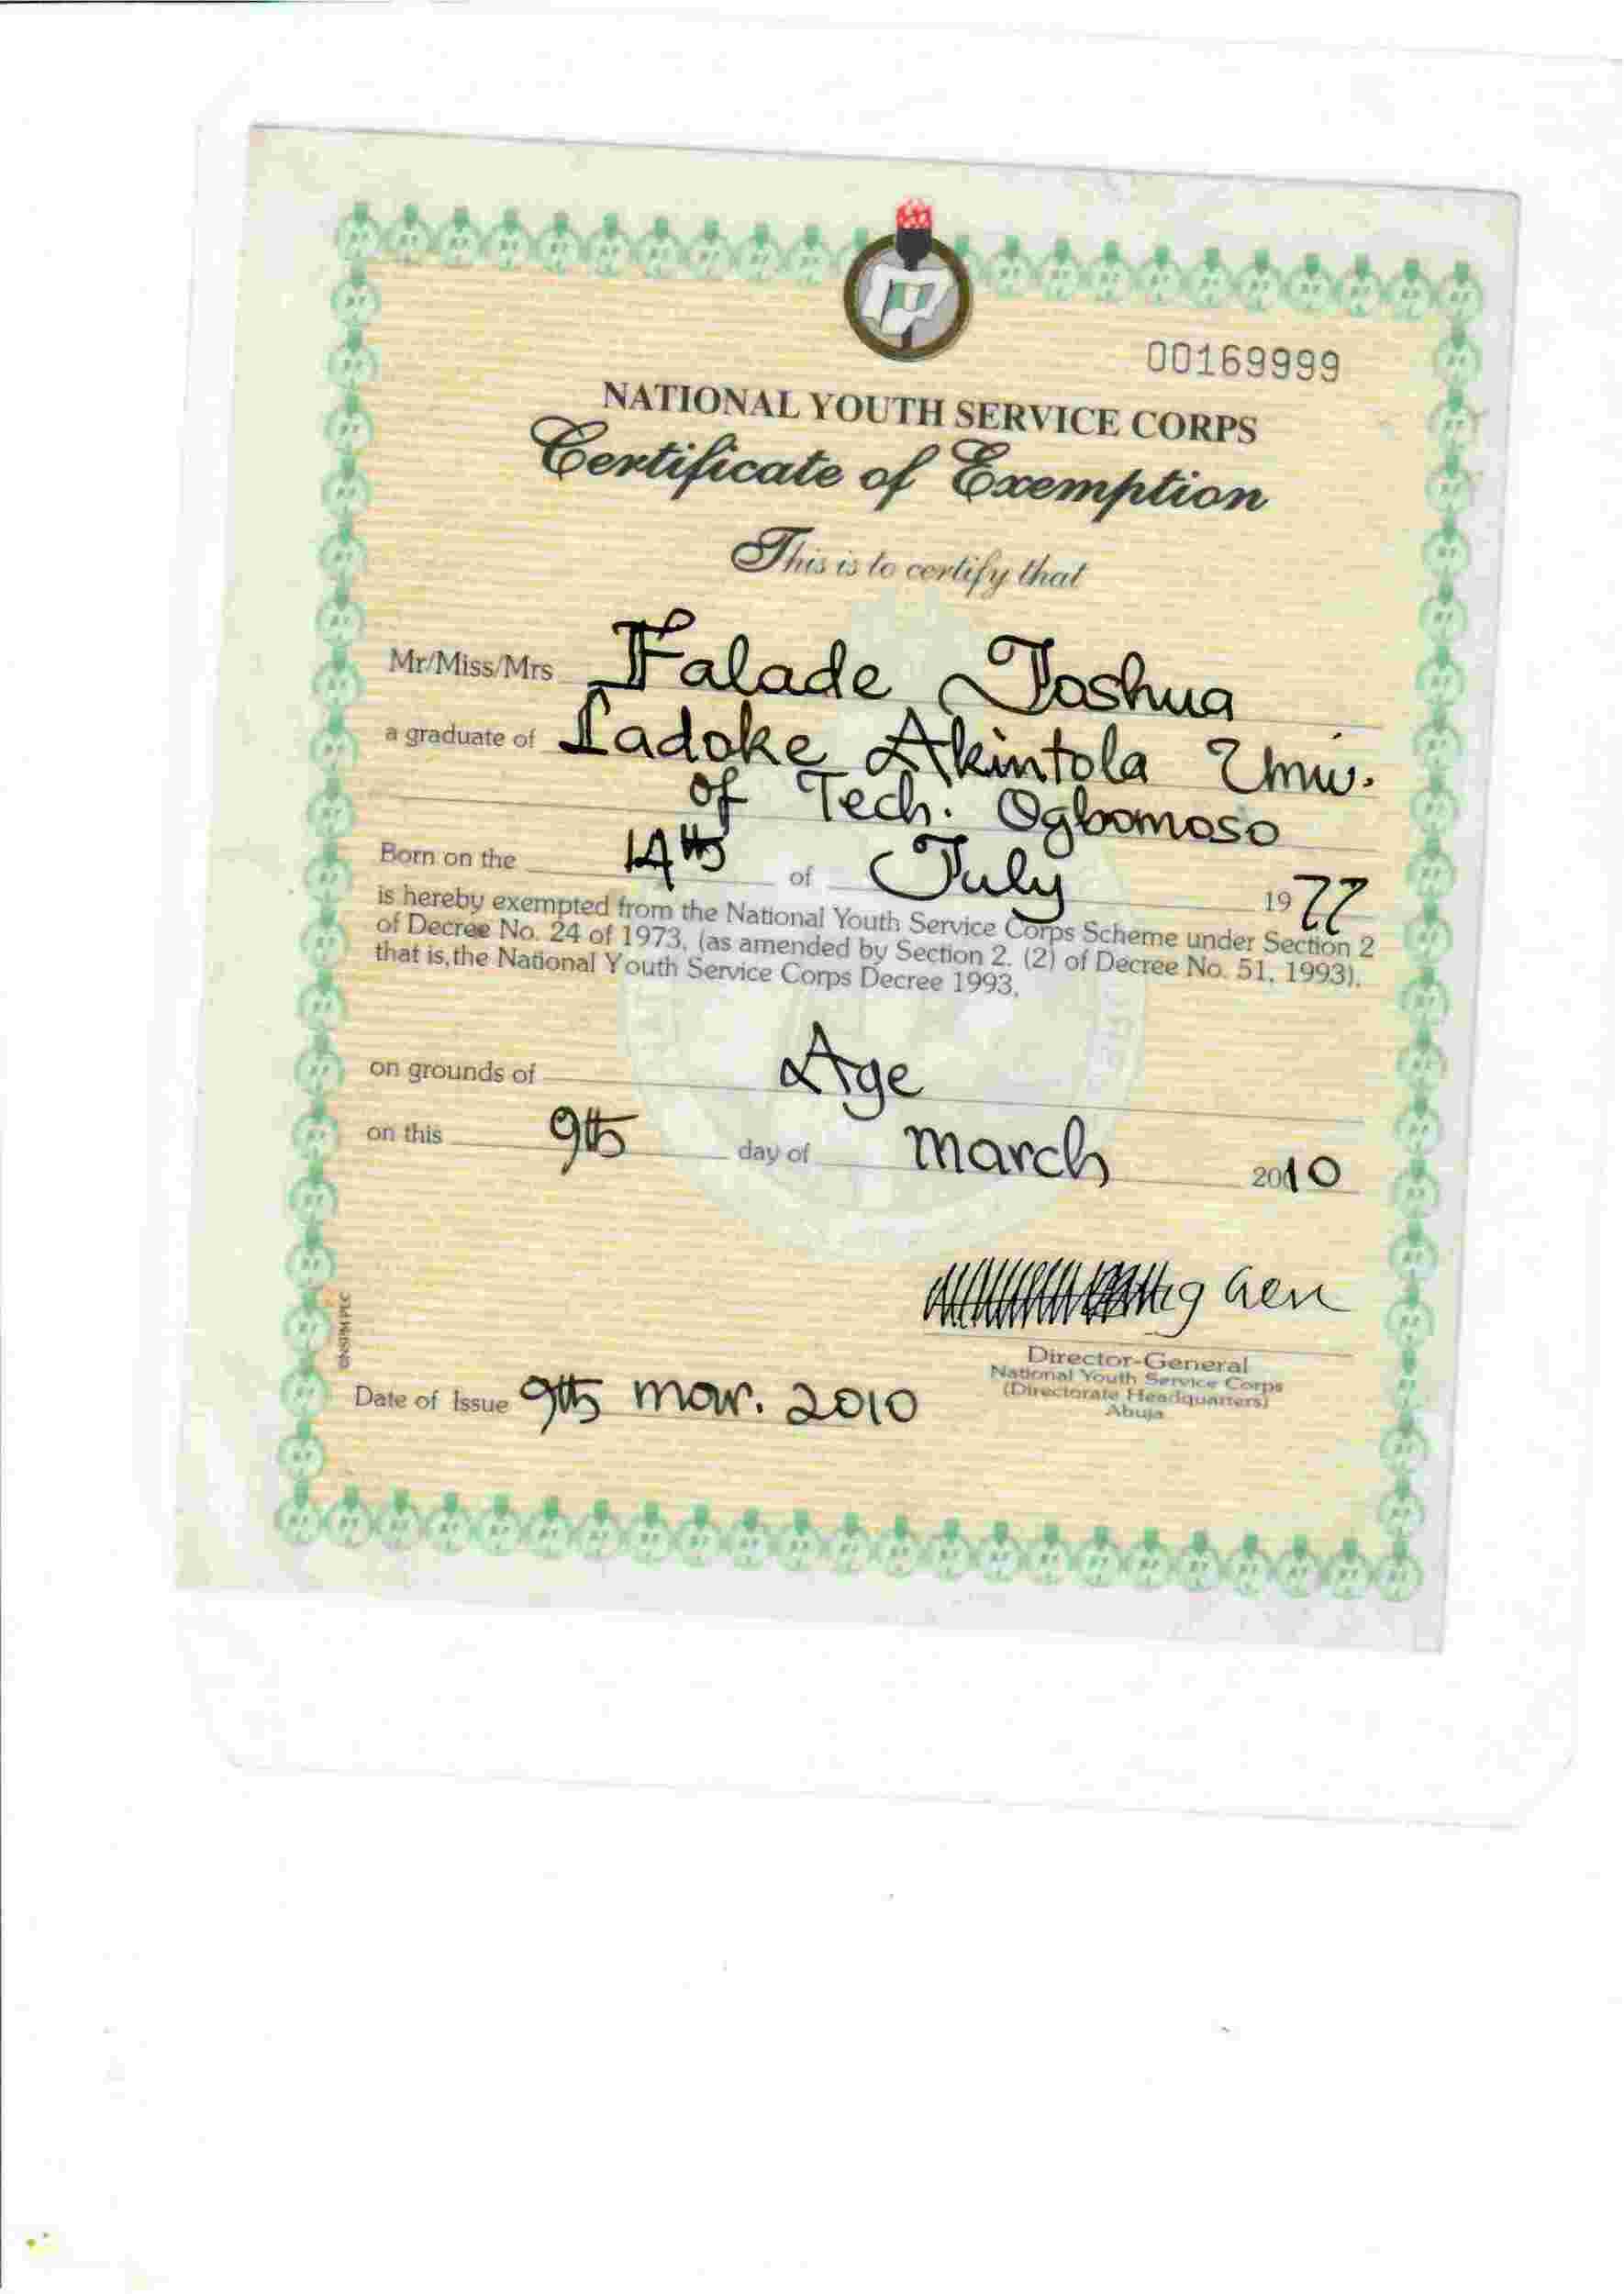 00169999
NATIONAL YOUTH SERVICE CORPS
Certificate of Exemption
This is to certify that
Mr/Miss/Mrs Falade Joshua
a graduate of Ladoke Akintola Univ.
of Tech. Ogbomoso
Born on the 14th of July 1977
is hereby exempted from the National Youth Service Corps Scheme under Section 2
of Decree No. 24 of 1973, (as amended by Section 2. (2) of Decree No. 51, 1993),
that is, the National Youth Service Corps Decree 1993,
on grounds of Age
on this 9th day of March 2010
Gen
Director-General
National Youth Service Corps
(Directorate Headquarters)
Abuja
Date of Issue 9th Mar. 2010
©NSPM PLC